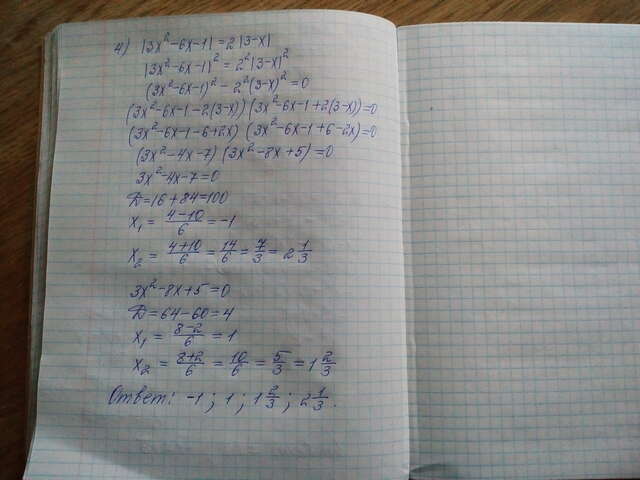 4) |3x²-6x-1|=2|3-x|
|3x²-6x-1|²=2²|3-x|²
(3x²-6x-1)²-2²(3-x)²=0
(3x²-6x-1-2(3-x))(3x²-6x-1+2(3-x))=0
(3x²-6x-1-6+2x)(3x²-6x-1+6-2x)=0
(3x²-4x-7)(3x²-8x+5)=0
3x²-4x-7=0
D=16+84=100
x₁=(4-10)/6=-1
x₂=(4+10)/6=14/6=7/3=2 1/3
3x²-8x+5=0
D=64-60=4
x₁=(8-2)/6=1
x₂=(8+2)/6=10/6=5/3=1 2/3
Ответ: -1; 1; 1 2/3; 2 1/3.